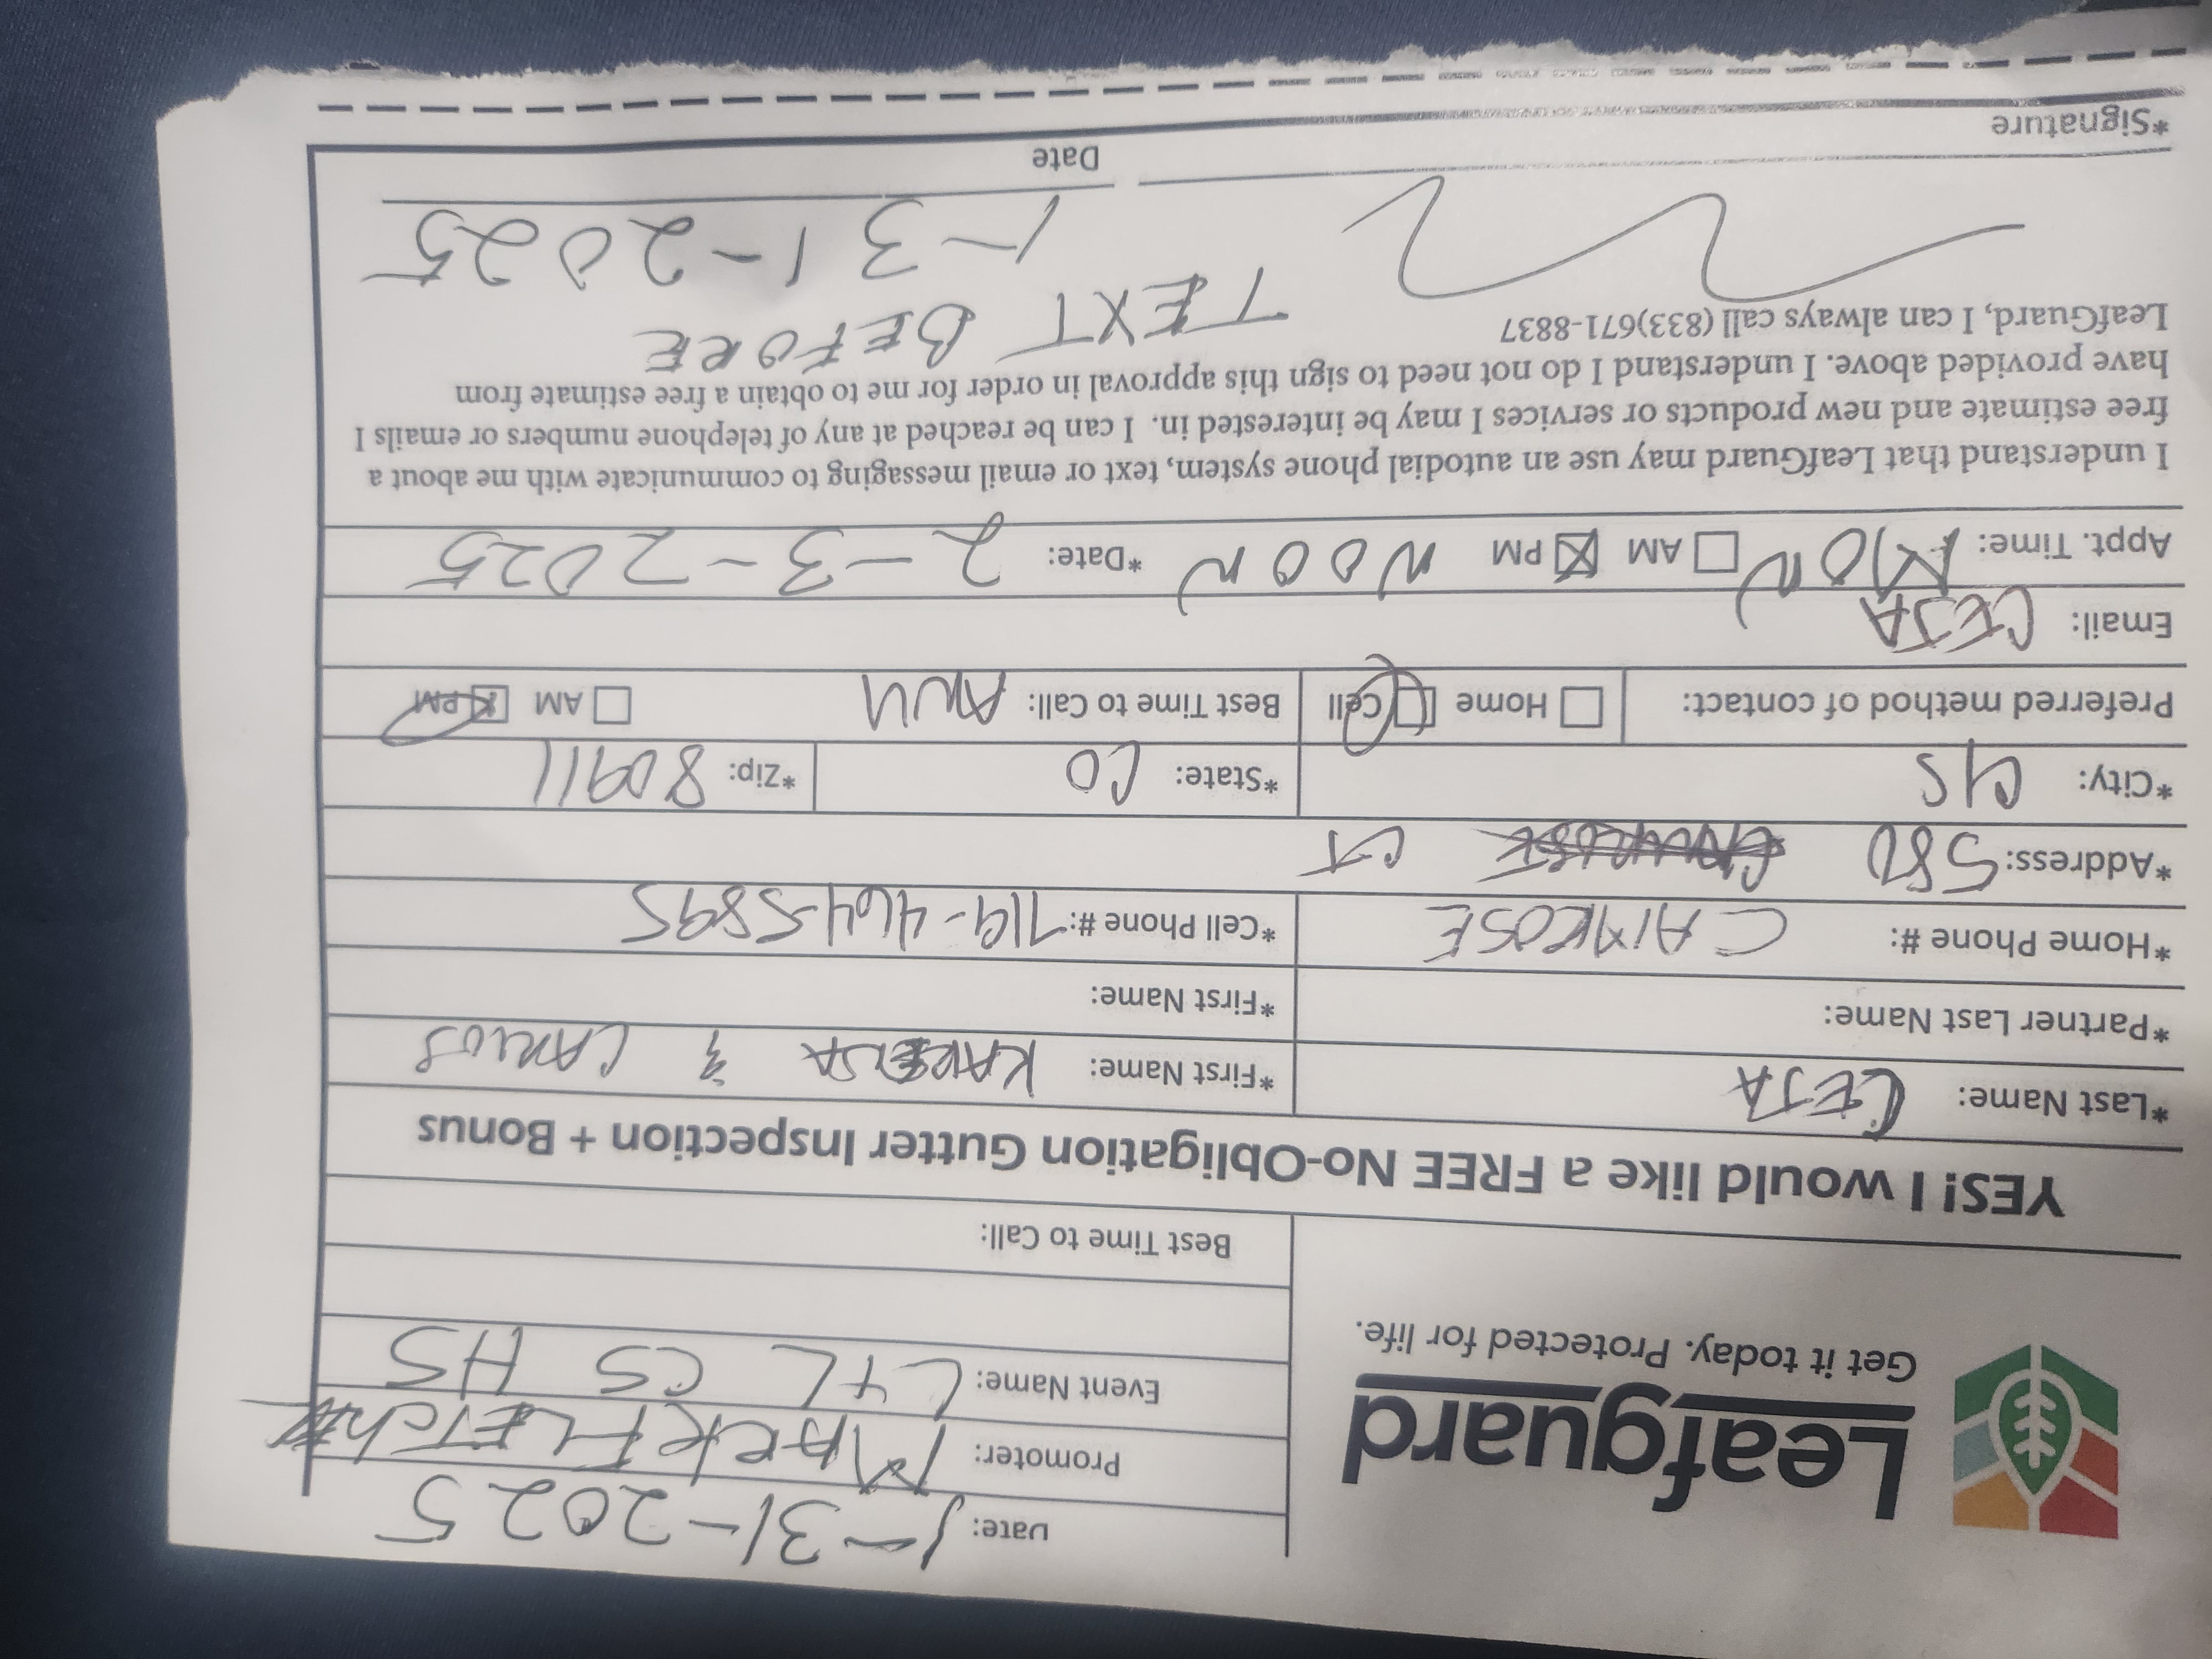 Leafguard
Get it today. Protected for life.
Date: 1-31-2025
Promoter: MARK FLETCHER
Event Name: L4L CS HS
Best Time to Call:
YES! I would like a FREE No-Obligation Gutter Inspection + Bonus
*Last Name: CEJA *First Name: KARENA & CARLOS
*Partner Last Name: *First Name:
*Home Phone #: CAMROSE *Cell Phone #: 719-464-5895
*Address: 580 CT
*City: C/S *State: CO *Zip: 80911
Preferred method of contact: Home Cell Best Time to Call: ANY AM PM
Email: CEJA
Appt. Time: MON AM PM NOON *Date: 2-3-2025
I understand that LeafGuard may use an autodial phone system, text or email messaging to communicate with me about a
free estimate and new products or services I may be interested in. I can be reached at any of telephone numbers or emails I
have provided above. I understand I do not need to sign this approval in order for me to obtain a free estimate from
LeafGuard, I can always call (833)671-8837
TEXT BEFORE
1-31-2025
*Signature Date